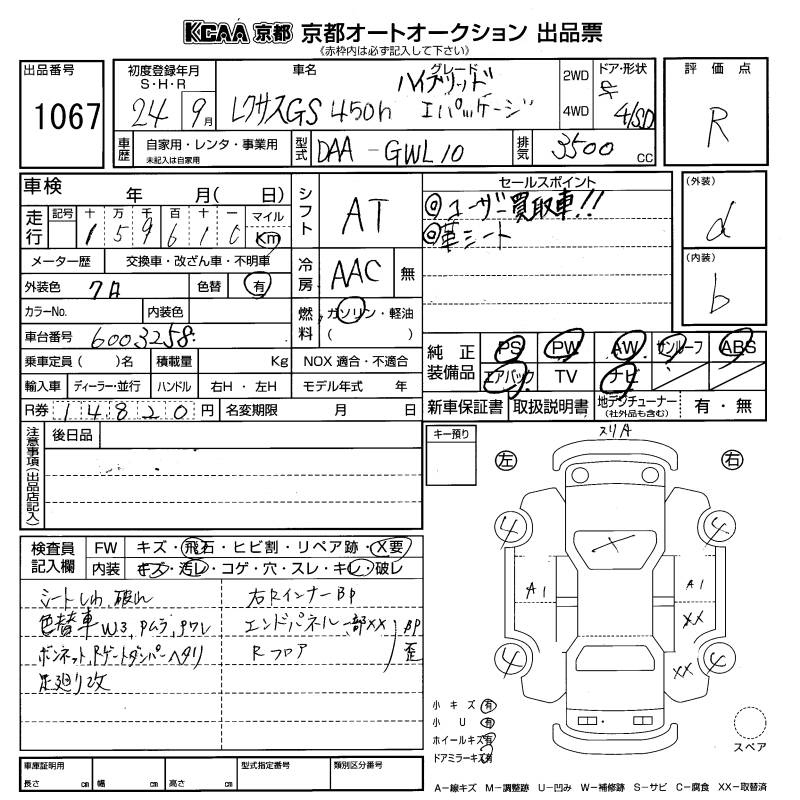 KCAA 京都 京都オートオークション 出品票
《赤枠内は必ず記入して下さい》
出品番号
1067
初度登録年月
S・H・R
24 9月
車名
グレード
レクサスGS 450h
ハイブリッド
Iパッケージ
2WD
4WD
ドア・形状
4/SD
評価点
R
車歴
自家用・レンタ・事業用
未記入は自家用
型式
DAA-GWL10
排気
3500 CC
車検 年 月( 日)
走行
記号 十 万 千 百 十 一 マイル
1 5 9 6 1 0 Km
メーター歴 交換車・改ざん車・不明車
外装色 色替 有
カラーNo. 内装色
車台番号 6003258
乗車定員( )名 積載量 Kg
輸入車 ディーラー・並行 ハンドル 右H・左H
R券 14820円 名変期限 月 日
シフト AT
冷房 AAC 無
燃料 ガソリン・軽油
( )
NOX 適合・不適合
モデル年式 年
セールスポイント
◎ユーザー買取車!!
◎革シート
(外装)
d
(内装)
b
純正装備品
PS PW AW サンルーフ ABS
エアバック TV ナビ
新車保証書 取扱説明書 地デジチューナー(社外品も含む) 有・無
注意事項(出品店記入)
後日品
キー預り
スリキ
左 右
4 4
A1 A1
XX
4 4
XX
X
検査員記入欄
FW キズ・飛石・ヒビ割・リペア跡・X要
内装 キズ・汚レ・コゲ・穴・スレ・キレ・破レ
シートしわ、破れ
色替車 W3、Pムラ、Pワレ
ボンネット、Rゲートダンパーヘタリ
足廻り改
右RインナーBP
エンドパネル一部XX
Rフロア
BP歪
小キズ 有
小U 有
ホイールキズ有
ドアミラーキズ有
スペア
車庫証明用
長さ cm 幅 cm 高さ cm
型式指定番号
類別区分番号
A－線キズ M－調整跡 U－凹み W－補修跡 S－サビ C－腐食 XX－取替済